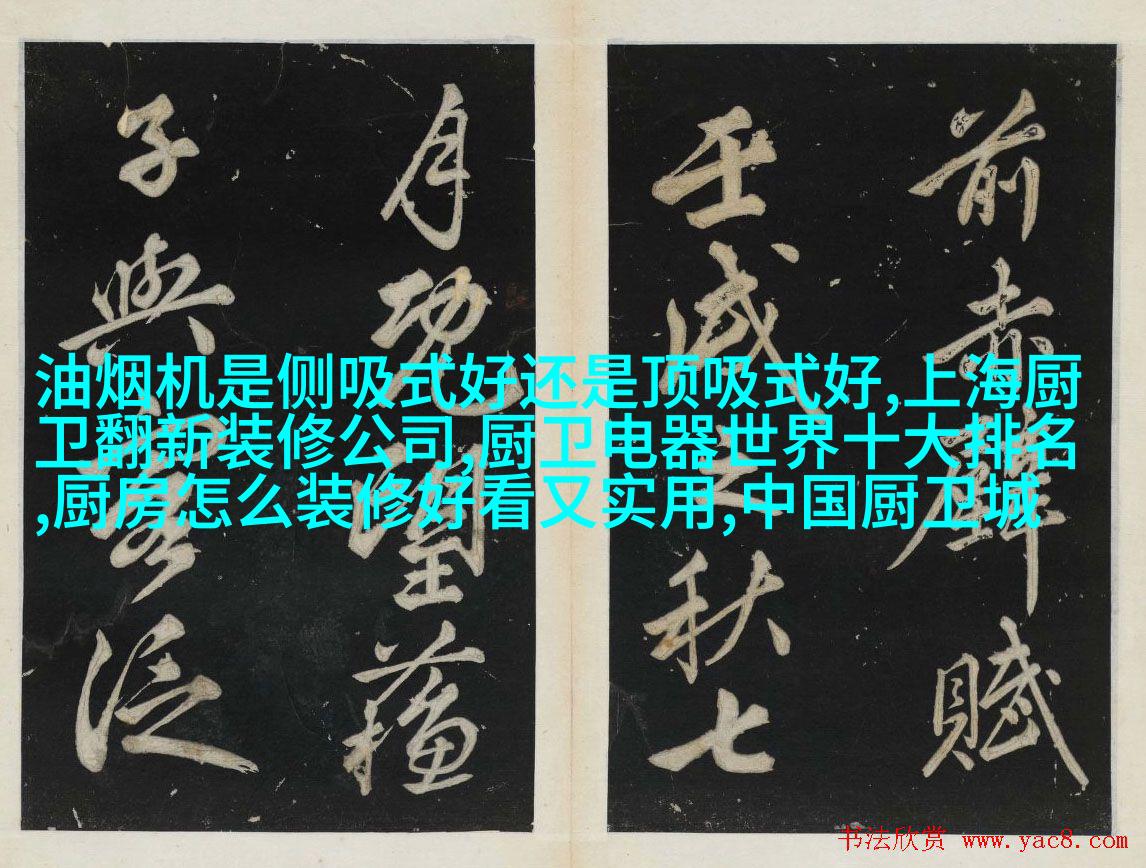 前赤壁賦
壬戌之秋七
月既望蘇
子與客泛
油烟机是侧吸式好还是顶吸式好,上海厨
卫翻新装修公司,厨卫电器世界十大排名
,厨房怎么装修好看又实用,中国厨卫城
书法欣赏 www.yac8.com